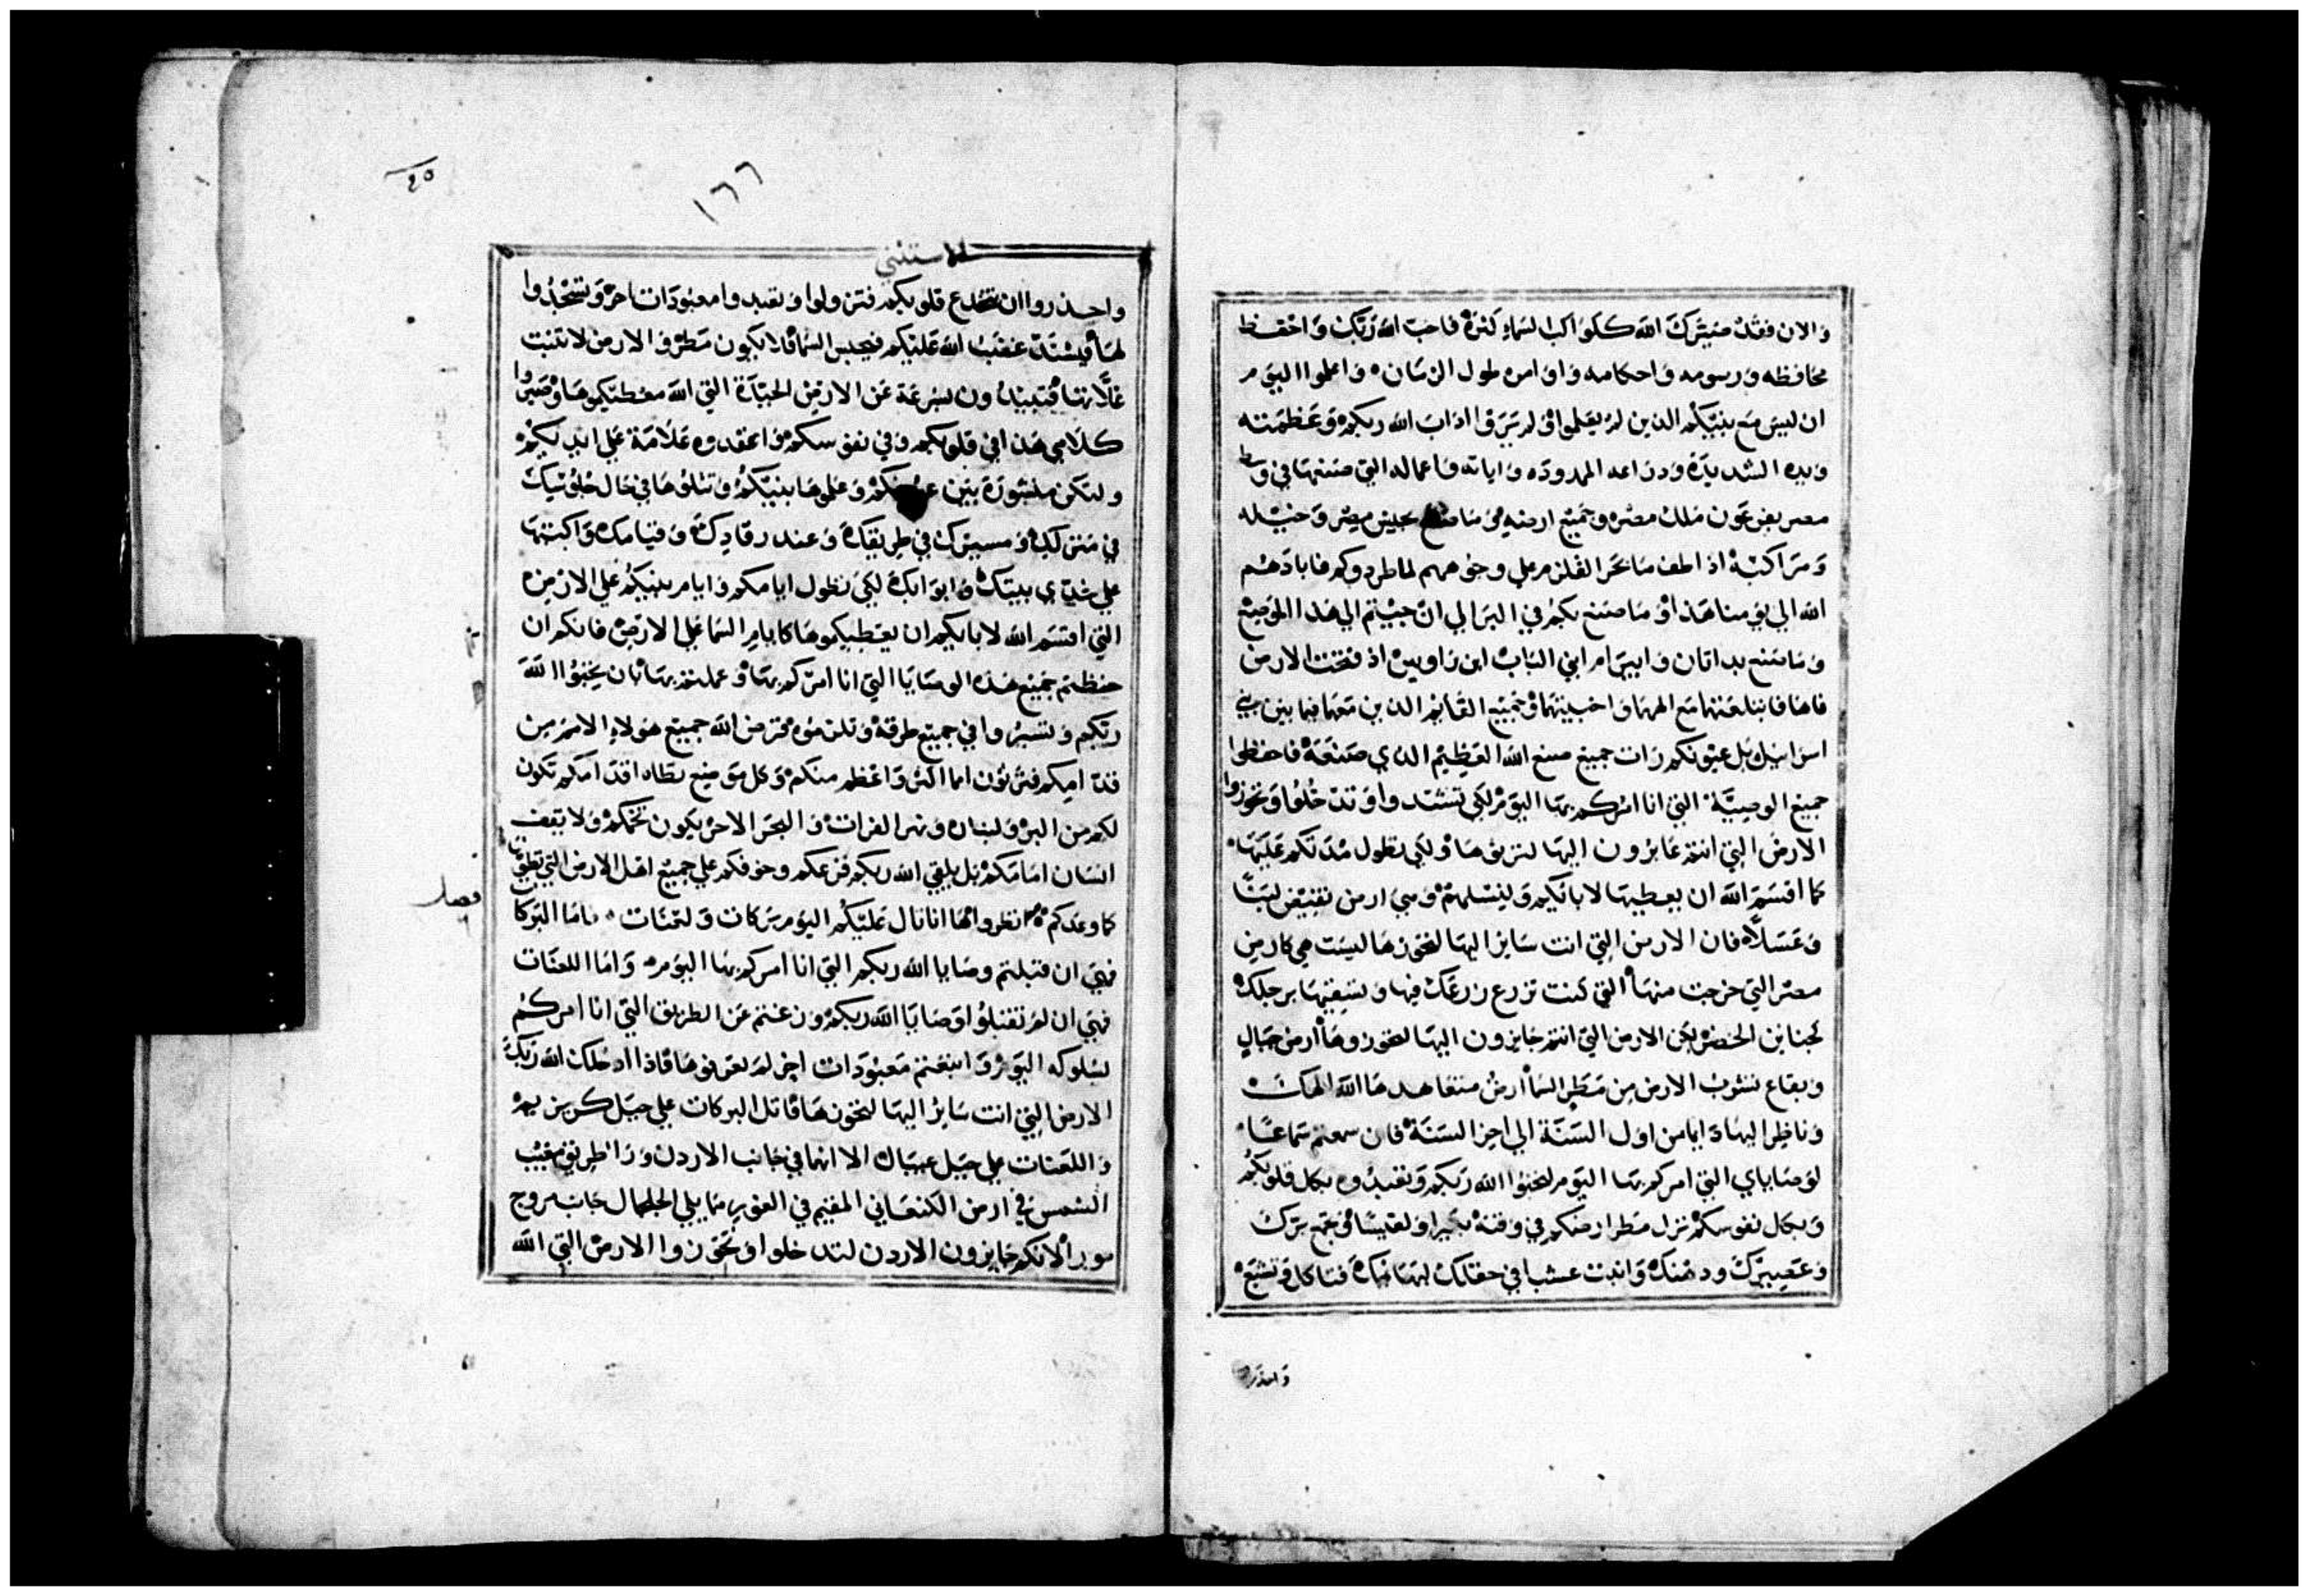 والان فقد صيرك الله ككواكب السماء كثرة فاحب الله ربك واحفظ
محافظه ورسومه واحكامه واوامره طول الزمان واعلموا اليوم
ان ليس مع بنيكم الذين لم يعلموا ولم يروا اداب الله ربكم وعظمته
ويده الشديدة وذراعه الممدوده واياته واعماله التي صنعها في وسط
مصر بفرعون ملك مصر وجميع ارضه وما صنع بجيش مصر وخيله
ومراكبه اذ اطف ما بحر القلزم علي وجوههم لما طردوكم فابادهم
الله الي يومنا هذا وما صنع بكم في البر الي ان جيتم الي هذا الموضع
وما صنع بداتان وابيرام ابني الياب ابن راوبين اذ فتحت الارض
فاها فابتلعتهما مع الهما واخبيتهما وجميع القايم الذين معهما فيما بين بني
اسراييل بل عيونكم رات جميع صنع الله العظيم الذي صنعه فاحفظوا
جميع الوصية التي انا امركم بها اليوم لكي تشتدوا وتدخلوا وتحوزوا
الارض التي انتم عابرون اليها لترثوها ولكي تطول مدتكم عليها
كما اقسم الله ان يعطيها لابايكم ولينسلهم وهي ارض تفيض لبنا
وعسلا فان الارض التي انت ساير اليها لتحوزها ليست هي كارض
مصر التي خرجت منها التي كنت تزرع زرعك فيها وتسقيها برجلك
كجناين الخضر لكن الارض التي انتم جايزون اليها لتحوزوها ارض جبال
وبقاع تشرب الارض من مطر السما ارض متعاهدها الله الهك
وناظر اليها دايما من اول السنة الي اخر السنة فان سمعتم سماعا
لوصاياي التي امركم بها اليوم لتحبوا الله ربكم وتعبدوه بكل قلوبكم
وبكل نفوسكم نزل مطر ارضكم في وقته بكيرا ولقيسا وجمع برك
وعصيرك ودهنك وانبت عشبا في حقلك لبهايمك فتاكل وتشبع
واحذر
٤٥
١٦٦
الاستثني
واحذروا ان تنخدع قلوبكم فتزولوا وتعبدوا معبودات اخر وتسجدوا
لها فيشتد غضب الله عليكم فيحبس السما فلا يكون مطر والارض لا تنبت
غلاتها فتبيدون بسرعة عن الارض الجيدة التي الله معطيكموها وصيروا
كلامي هذا في قلوبكم وفي نفوسكم واعقدوه علامة علي ايديكم
ولتكن منشورة بين عيونكم وعلموها بنيكم وتتلوها في حال جلوسك
في منزلك ومسيرك في طريقك وعند رقادك وقيامك واكتبها
علي شدي بيتك وابوابك لكي تطول ايامكم وايام بنيكم علي الارض
التي اقسم الله لابايكم ان يعطيكموها كايام السما علي الارض فانكم ان
حفظتم جميع هذه الوصايا التي انا امركم بها وعملتم بها بان تحبوا الله
ربكم وتسيروا في جميع طرقه وتلزموه قرض الله جميع هولاء الامم من
قدامكم فترثون امما اكثر واعظم منكم وكل موضع يطاه اقدامكم تكون
لكم من البر ولبنان ونهر الفرات والبحر الاخر يكون تخمكم ولا يقف
انسان امامكم بل يلقي الله ربكم فزعكم وخوفكم علي جميع اهل الارض التي تطوها
فصل
كما وعدكم انظروا ها انا تال عليكم اليوم بركات ولعنات فاما البركا
فهي ان قبلتم وصايا الله ربكم التي انا امركم بها اليوم واما اللعنات
فهي ان لم تقبلوا وصايا الله ربكم وزغتم عن الطريق التي انا امركم
بسلوكه اليوم واتبعتم معبودات اخر لم تعرفوها فاذا ادخلك الله ربك
الارض التي انت ساير اليها لتحوزها فاتل البركات علي جبل كريزيم
واللعنات علي جبل عيبال الا انهما في جانب الاردن ورا طريق مغيب
الشمس في ارض الكنعاني المقيم في الغور مما يلي الجلجال جانب مروج
مورا لانكم جايزون الاردن لتدخلوا وتحوزوا الارض التي الله